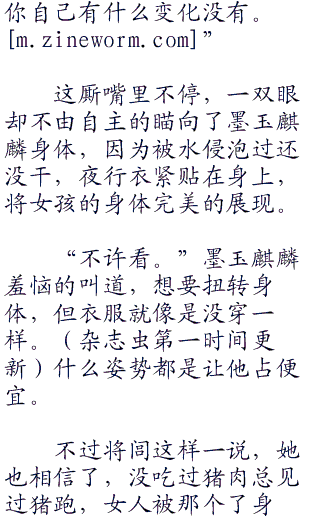 你自己有什么变化没有。
[m.zineworm.com]”
这厮嘴里不停，一双眼
却不由自主的瞄向了墨玉麒
麟身体，因为被水侵泡过还
没干，夜行衣紧贴在身上，
将女孩的身体完美的展现。
“不许看。”墨玉麒麟
羞恼的叫道，想要扭转身
体，但衣服就像是没穿一
样。（杂志虫第一时间更
新）什么姿势都是让他占便
宜。
不过将闾这样一说，她
也相信了，没吃过猪肉总见
过猪跑，女人被那个了身